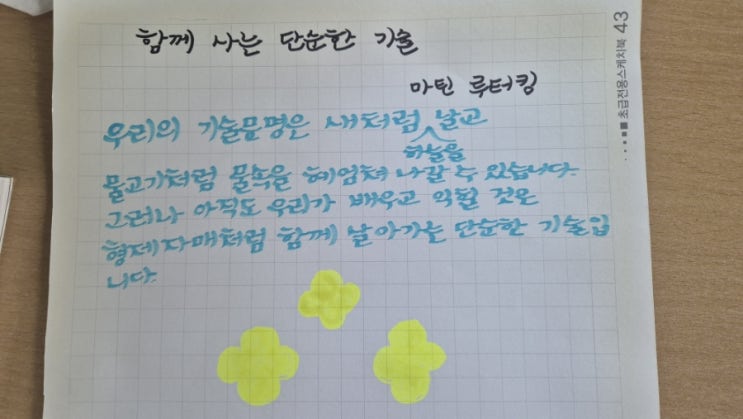 함께 사는 단순한 기술
마틴 루터킹
우리의 기술문명은 새처럼 날고
하늘을
물고기처럼 물속을 헤엄쳐 나갈 수 있습니다.
그러나 아직도 우리가 배우고 익힐 것은
형제자매처럼 함께 날아가는 단순한 기술입
니다.
초급전용스케치북 43